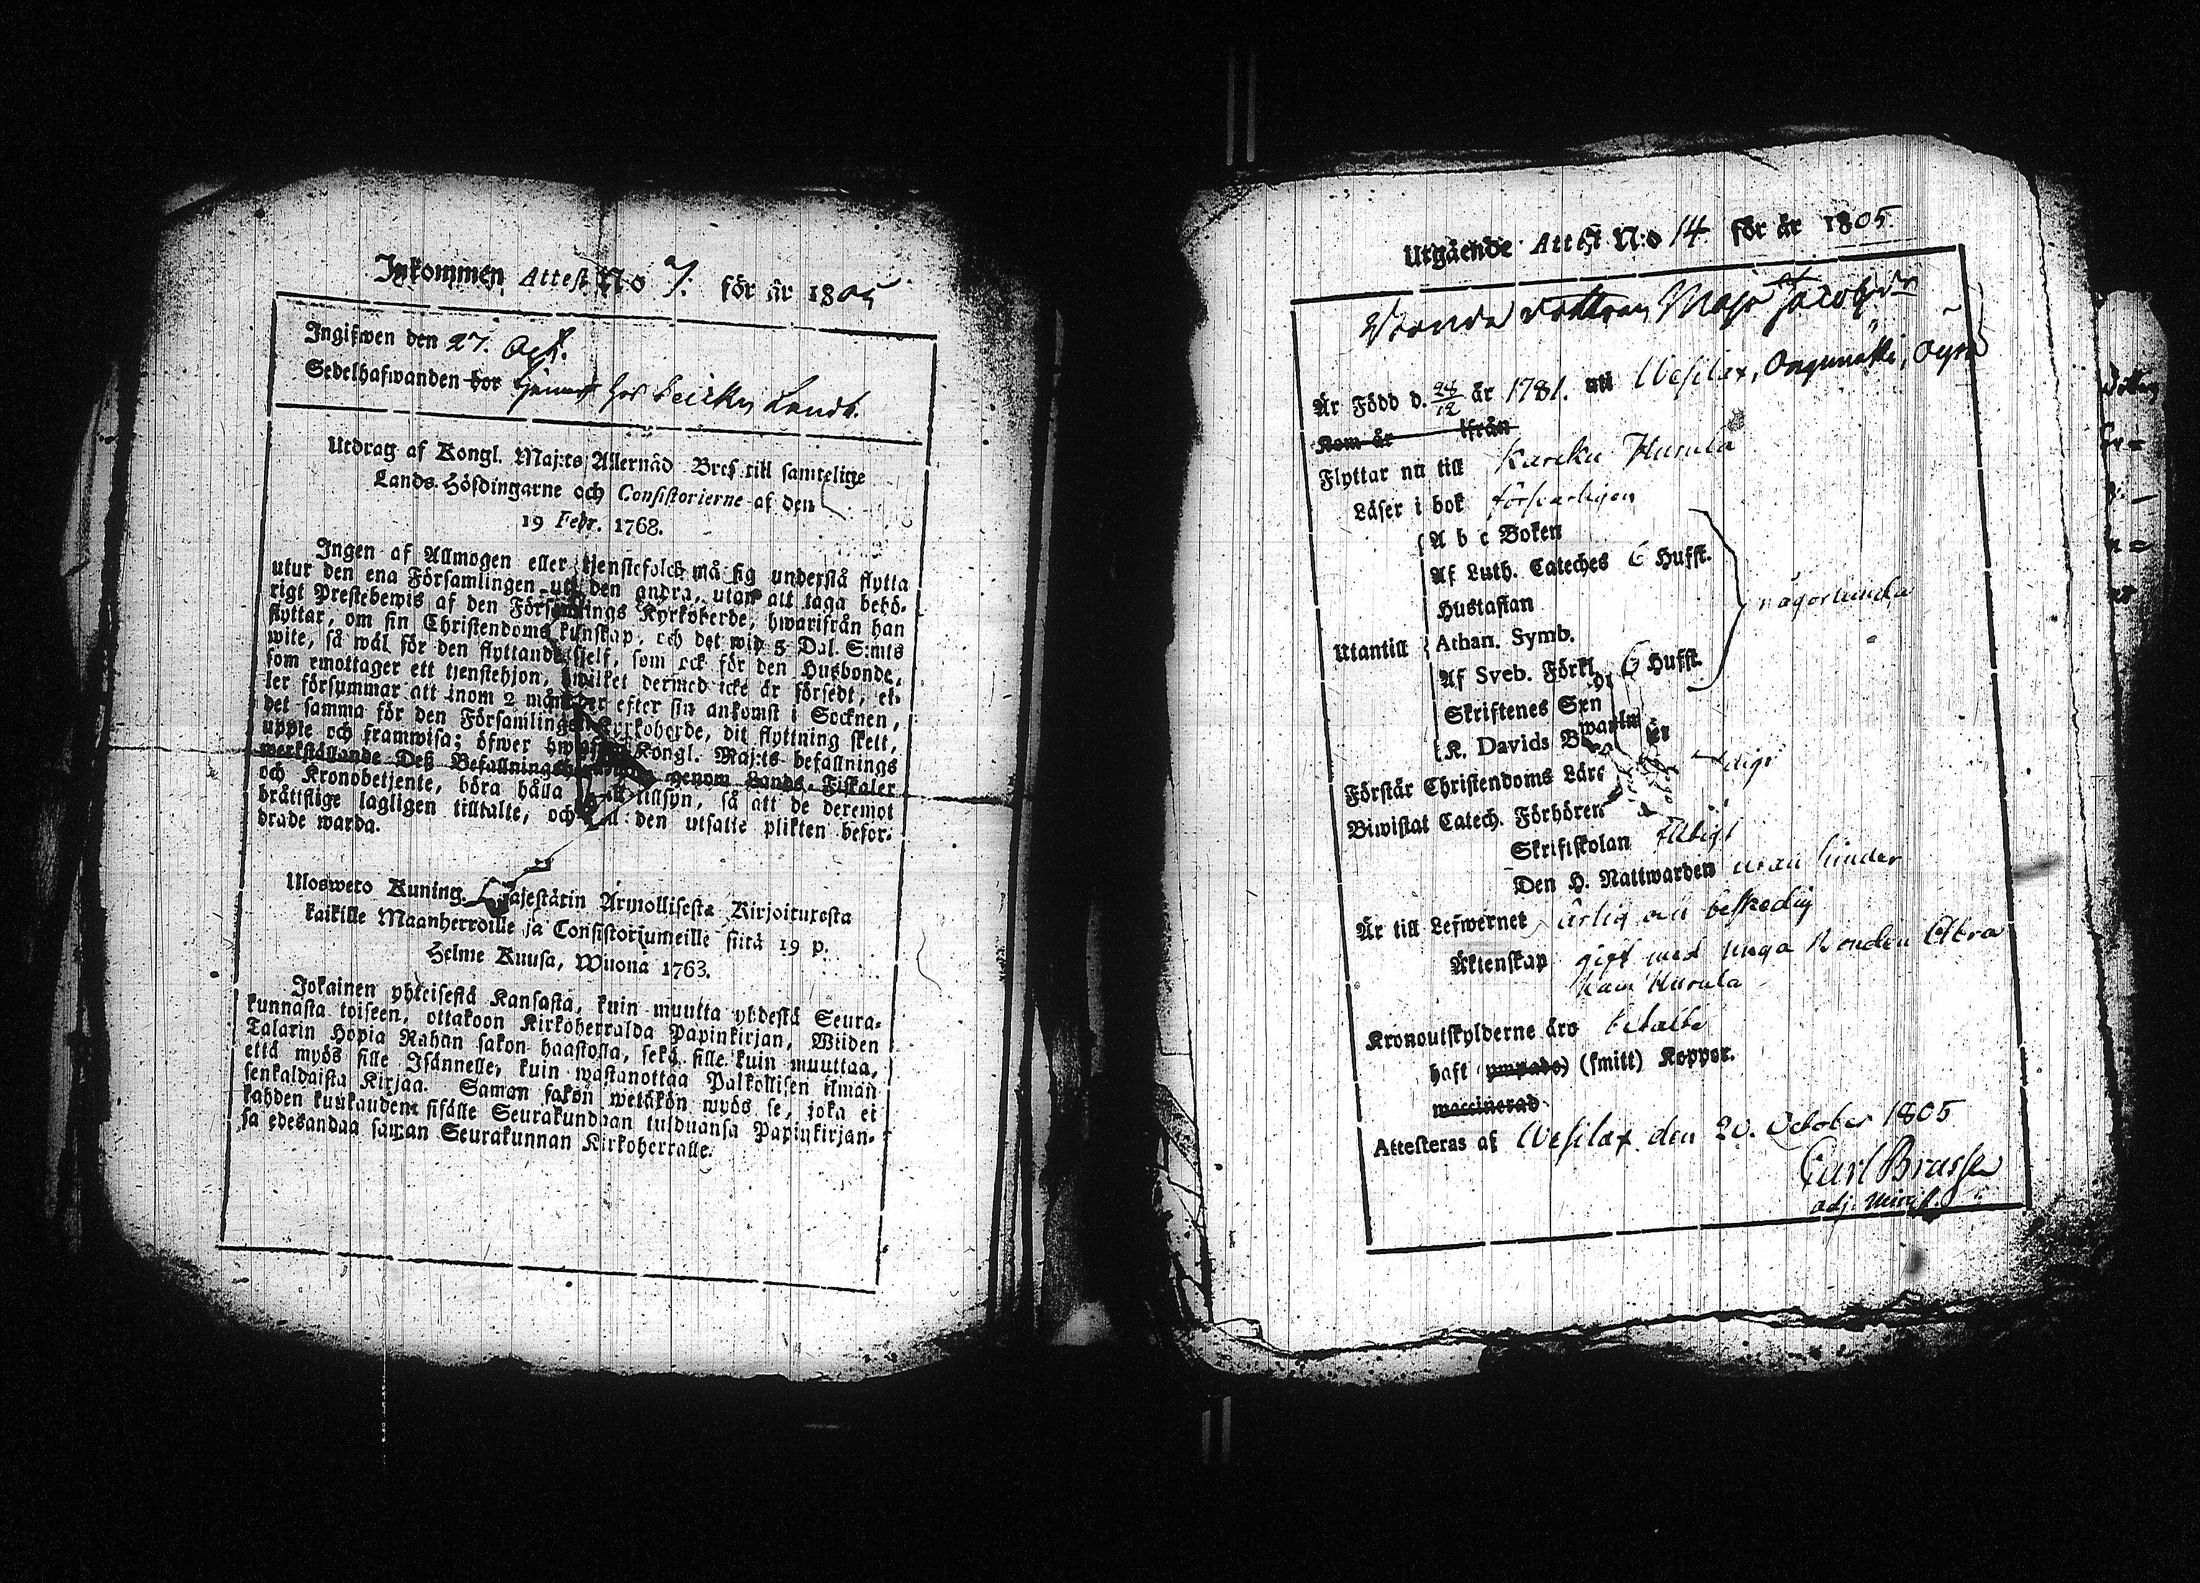 Inkommen Attest No 7. för år 1805
Ingifwen den 27. Oct.
Sedelhafwanden bor tjenar hos Leicku Landb.
Utdrag af Kongl. Maj:ts Allernåd. Bref till samtelige
Lands-Höfdingarne och Consistorierne af den
19 Febr. 1768.
Ingen af Allmogen eller tjenstefolck må sig understå flytta
utur den ena Församlingen uti den andra, utan att taga behö-
rigt Prestebewis af den Församlings Kyrkoherde, hwarifrån han
flyttar, om sin Christendoms kunskap, och det wid 5 Dal. S:mts
wite, så wäl för den flyttande sjelf, som ock för den Husbonde,
som emottager ett tjenstehjon, hwilket dermed icke är försedt, el-
ler försummar att inom 2 månader efter sin ankomst i Socknen,
det samma för den Församlings Kyrkoherde, dit flyttning skett,
uppte och framwisa; öfwer hwilket Kongl. Maj:ts befallnings
werkställande Deß Befallningshafwande genom Lands-Fiskaler
och Kronobetjente, böra hålla tillsyn, så att de deremot
bråttslige lagligen tilltalte, och till den utsatte plikten befor-
drade warda.
Ulosweto Kuning. Majestätin Armollisesta Kirjoituxesta
kaikille Maanherroille ja Consistoriumeille siitä 19 p.
Helme Kuusa, Wuona 1763.
Jokainen yhteisestä Kansasta, kuin muutta yhdestä Seura-
kunnasta toiseen, ottakoon Kirkoherralda Papinkirjan, Wiiden
Talarin Hopia Rahan sakon haastolla, sekä sille kuin muuttaa,
että myös sille Isännelle, kuin wastanottaa Palkollisen ilman
senkaldaista Kirjaa. Saman sakon wetäkön myös se, joka ei
kahden kuukauden sisälle Seurakundaan tulduansa Papinkirjan-
sa edesandaa saman Seurakunnan Kirkoherralle.
Utgående Attest N:o 14 för år 1805.
Bonde dottren Maja Jacobsdr
Är Född d. 24/12 år 1781. uti Wesilax, Onguniemi,
Kom år ifrån
Flyttar nu till Karcku Hurula
Läser i bok försvarligen
A b c Boken
Af Luth. Cateches 6 Hufst.
Hustaflan
Utantill Athan. Symb. någorlunda
Af Sveb. Förkl. 6 Hufst.
Skriftenes Spr
K. Davids B
Förstår Christendoms Lära
Biwistat Catech. Förhören
Skriftskolan flitigt
Den H. Nattwarden utan hinder
Är till Lefwernet ärlig och beskedlig
Äktenskap gift med unga Bonden Abra
ham Hurula
Kronoutskylderne äro betalte
haft ympade) (smitt) Koppor.
waccinerad
Attesteras af Wesilax den 20. October 1805
Carl Brusse
adj. minist.